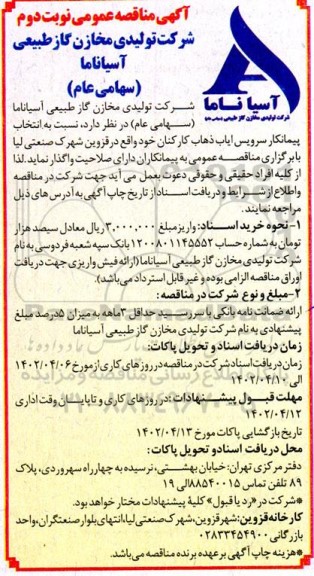 آگهی مناقصه عمومی نوبت دوم
شرکت تولیدی مخازن گاز طبیعی
آسیاناما
(سهامی عام)
آسیا ناما
شرکت تولیدی مخازن گاز طبیعی (سهامی عام)
شرکت تولیدی مخازن گاز طبیعی آسیاناما
(سهامی عام) در نظر دارد، نسبت به انتخاب
پیمانکار سرویس ایاب ذهاب کارکنان خود واقع در قزوین شهرک صنعتی لیا
با برگزاری مناقصه عمومی به پیمانکاران دارای صلاحیت واگذار نماید. لذا
از کلیه افراد حقیقی و حقوقی دعوت بعمل می آید جهت شرکت در مناقصه
واطلاع از شرایط و دریافت اسناد از تاریخ چاپ آگهی به آدرس های ذیل
مراجعه نمایند.
۱- نحوه خرید اسناد: واریز مبلغ ۳,۰۰۰,۰۰۰ ریال معادل سیصد هزار
تومان به شماره حساب ۱۲۰۰۸۰۱۱۴۵۵۵۲ بانک سپه شعبه فردوسی به نام
شرکت تولیدی مخازن گاز طبیعی آسیاناما (ارائه فیش واریزی جهت دریافت
اوراق مناقصه الزامی بوده و غیر قابل استرداد می باشد).
۲- مبلغ و نوع شرکت در مناقصه:
ارائه ضمانت نامه بانکی با سررسید حداقل ۳ماهه به میزان ۵درصد مبلغ
پیشنهادی به نام شرکت تولیدی مخازن گاز طبیعی آسیاناما
زمان دریافت اسناد و تحویل پاکات:
زمان دریافت اسناد شرکت در مناقصه در روزهای کاری از مورخ ۱۴۰۲/۰۴/۰۶
الی ۱۴۰۲/۰۴/۱۰
مهلت قبول پیشنهادات: در روزهای کاری و تا پایان وقت اداری
۱۴۰۲/۰۴/۱۲
تاریخ بازگشایی پاکات مورخ ۱۴۰۲/۰۴/۱۳
محل دریافت اسناد و تحویل پاکات:
دفتر مرکزی تهران: خیابان بهشتی، نرسیده به چهارراه سهروردی، پلاک
۸۹ تلفن تماس ۸۸۵۴۰۰۱۵ الی ۱۹
*شرکت در «رد یا قبول» کلیهٔ پیشنهادات مختار خواهد بود.
کارخانه قزوین: شهر قزوین، شهرک صنعتی لیا، انتهای بلوار صنعتگران، واحد
بازرگانی ۰۲۸۳۳۴۵۴۹۰۰
*هزینه چاپ آگهی بر عهده برنده مناقصه می باشد.